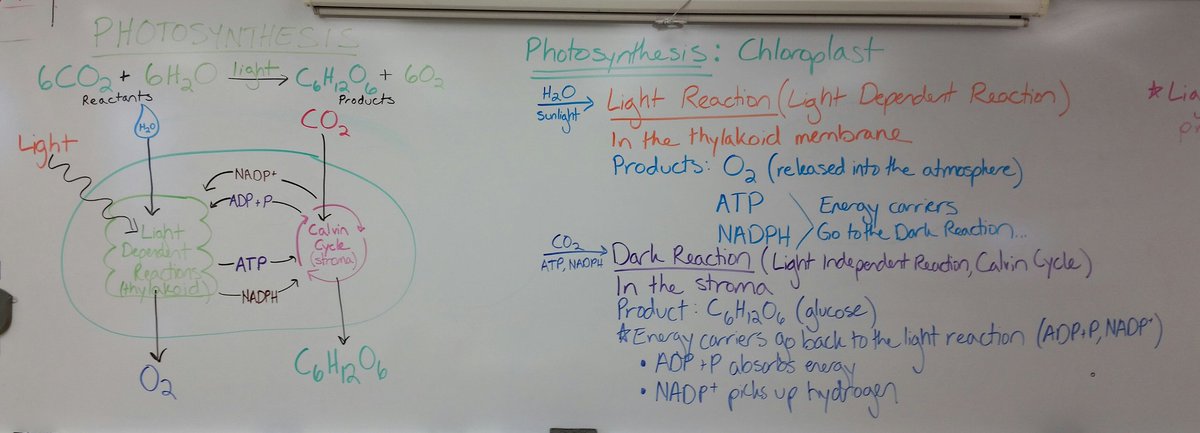 PHOTOSYNTHESIS
6CO₂ + 6H₂O light → C₆H₁₂O₆ + 6O₂
Reactants
Products
H₂O
CO₂
Light
NADP+
ADP+P
Light
Dependent
Reactions
(thylakoid)
Calvin
Cycle
(stroma)
ATP
NADPH
O₂
C₆H₁₂O₆
Photosynthesis: Chloroplast
H₂O
sunlight
Light Reaction (Light Dependent Reaction)
In the thylakoid membrane
Products: O₂ (released into the atmosphere)
ATP
NADPH
Energy carriers
Go to the Dark Reaction...
CO₂
ATP, NADPH
Dark Reaction (Light Independent Reaction, Calvin Cycle)
In the stroma
Product: C₆H₁₂O₆ (glucose)
★Energy carriers go back to the light reaction (ADP+P, NADP⁺)
• ADP+P absorbs energy
• NADP⁺ picks up hydrogen